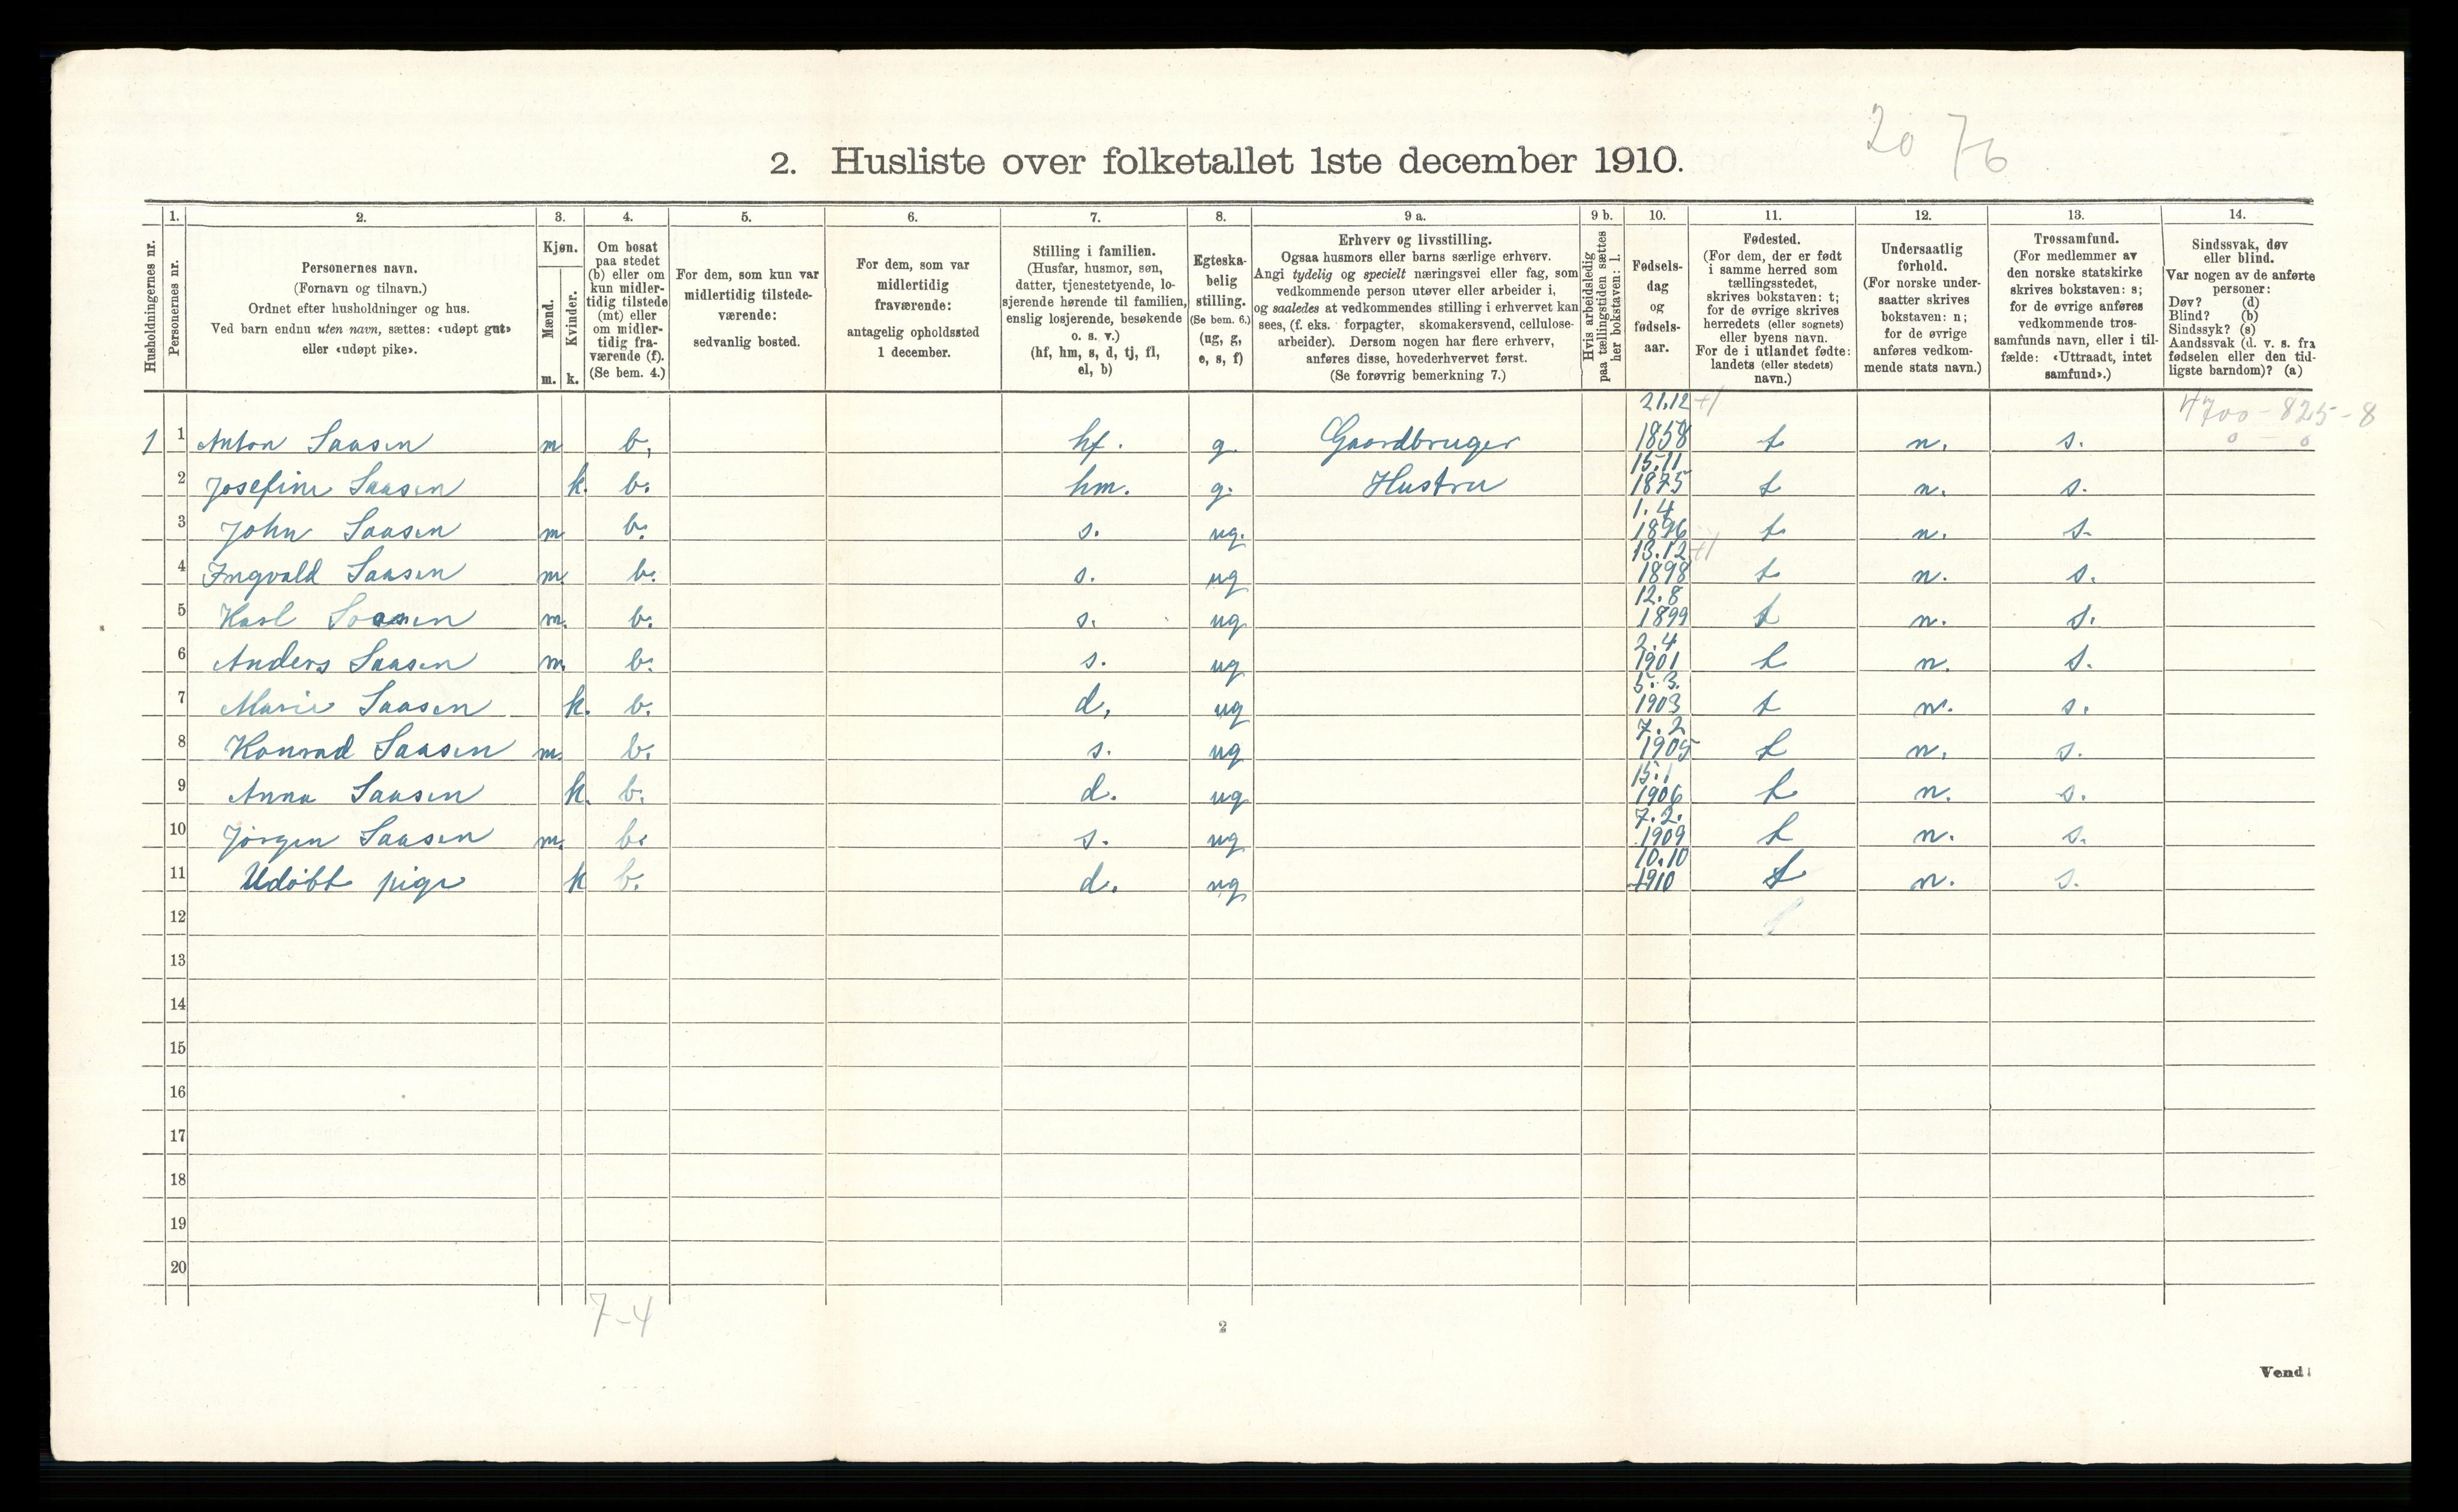 20 76
2. Husliste over folketallet 1ste december 1910.
Husholdningernes nr.
1. Personernes nr.
2. Personernes navn.
(Fornavn og tilnavn.)
Ordnet efter husholdninger og hus.
Ved barn endnu uten navn, sættes: «udøpt gut»
eller «udøpt pike».
3. Kjøn.
Mænd. m.
Kvinder. k.
4. Om bosat
paa stedet
(b) eller om
kun midler-
tidig tilstede
(mt) eller
om midler-
tidig fra-
værende (f).
(Se bem. 4.)
5. For dem, som kun var
midlertidig tilstede-
værende:
sedvanlig bosted.
6. For dem, som var
midlertidig
fraværende:
antagelig opholdssted
1 december.
7. Stilling i familien.
(Husfar, husmor, søn,
datter, tjenestetyende, lo-
sjerende hørende til familien,
enslig losjerende, besøkende
o. s. v.)
(hf, hm, s, d, tj, fl,
el, b)
8. Egteska-
belig
stilling.
(Se bem. 6.)
(ug, g,
e, s, f)
9 a. Erhverv og livsstilling.
Ogsaa husmors eller barns særlige erhverv.
Angi tydelig og specielt næringsvei eller fag, som
vedkommende person utøver eller arbeider i,
og saaledes at vedkommendes stilling i erhvervet kan
sees, (f. eks. forpagter, skomakersvend, cellulose-
arbeider). Dersom nogen har flere erhverv,
anføres disse, hovederhvervet først.
(Se forøvrig bemerkning 7.)
9 b. Hvis arbeidsledig
paa tællingstiden sættes
her bokstaven: l.
10. Fødsels-
dag
og
fødsels-
aar.
11. Fødested.
(For dem, der er født
i samme herred som
tællingsstedet,
skrives bokstaven: t;
for de øvrige skrives
herredets (eller sognets)
eller byens navn.
For de i utlandet fødte:
landets (eller stedets)
navn.)
12. Undersaatlig
forhold.
(For norske under-
saatter skrives
bokstaven: n;
for de øvrige
anføres vedkom-
mende stats navn.)
13. Trossamfund.
(For medlemmer av
den norske statskirke
skrives bokstaven: s;
for de øvrige anføres
vedkommende tros-
samfunds navn, eller i til-
fælde: «Uttraadt, intet
samfund».)
14. Sindssvak, døv
eller blind.
Var nogen av de anførte
personer:
Døv? (d)
Blind? (b)
Sindssyk? (s)
Aandssvak (d. v. s. fra
fødselen eller den tid-
ligste barndom)? (a)
4700 - 825 - 8
0 - 0
1 1 Anton Saasen m b. hf. g. Gaardbruger 21.12 1858 t n. s.
2 Josefine Saasen k. b. hm. g. Hustru 15.11 1875 t n. s.
3 John Saasen m b. s. ug. 1.4 1896 t n. s.
4 Ingvald Saasen m. b. s. ug 13.12 1898 t n. s.
5 Karl Saasen m. b. s. ug 12.8 1899 t n. s.
6 Anders Saasen m. b. s. ug 2.4 1901 t n. s.
7 Marie Saasen k. b. d. ug 5.3. 1903 t n. s.
8 Konrad Saasen m. b. s. ug 7.2 1905 t n. s.
9 Anna Saasen k. b. d. ug 15.1 1906 t n. s.
10 Jørgen Saasen m. b. s. ug 7.2. 1909 t n. s.
11 Udøbt pige k b. d. ug 10.10 1910 t n. s.
12
13
14
15
16
17
18
19
20
7-4
2
Vend!